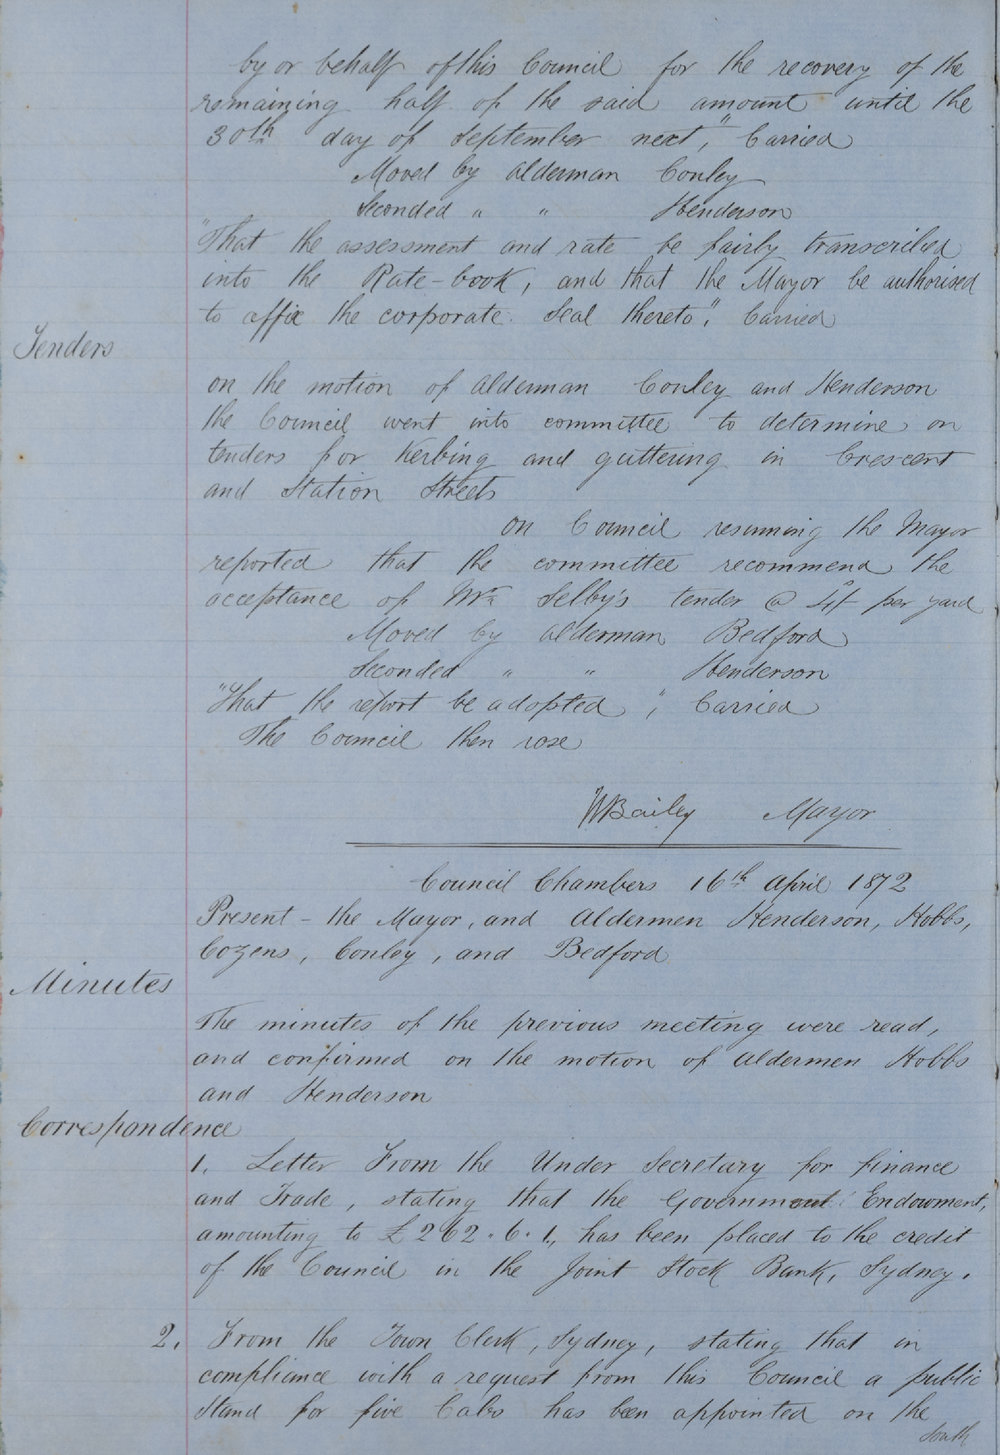 by or behalf of this Council for the recovery of the
remaining half of the said amount until the
30th day of September next", Carried
Moved by Alderman Conley
Seconded " " Henderson
"That the assessment and rate be fairly transcribed
into the Rate-book, and that the Mayor be authorised
to affix the corporate Seal thereto", Carried
Tenders
on the motion of Alderman Conley and Henderson
the Council went into committee to determine on
tenders for Kerbing and guttering in Crescent
and Station Streets
On Council resuming the Mayor
reported that the committee recommend the
acceptance of Mr Selby's tender @ 4/- per yard
Moved by Alderman Bedford
Seconded " " Henderson
"That the report be adopted", Carried
The Council then rose
WBailey Mayor
Council Chambers 16th April 1872
Present - the Mayor, and Aldermen Henderson, Hobbs,
Cozens, Conley, and Bedford
Minutes
The minutes of the previous meeting were read,
and confirmed on the motion of Aldermen Hobbs
and Henderson
Correspondence
1. Letter From the Under Secretary for finance
and Trade, stating that the Government Endowment,
amounting to £262.6.1, has been placed to the credit
of the Council in the Joint Stock Bank, Sydney.
2. From the Town Clerk, Sydney, stating that in
compliance with a request from this Council a public
Stand for five Cabs has been appointed on the
South